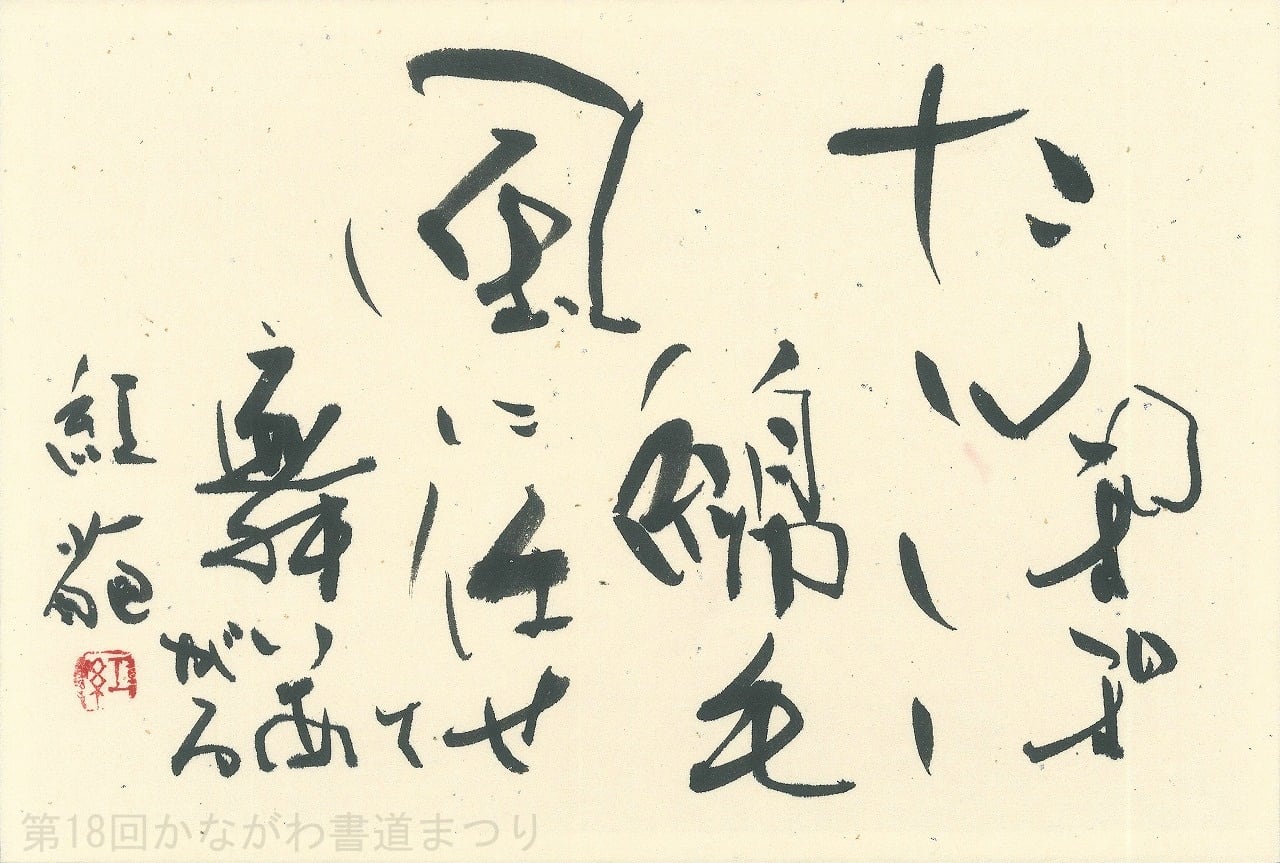 たんぽぽ
綿毛
風に任せて
舞いあ
がる
紅苑
紅
第18回かながわ書道まつり